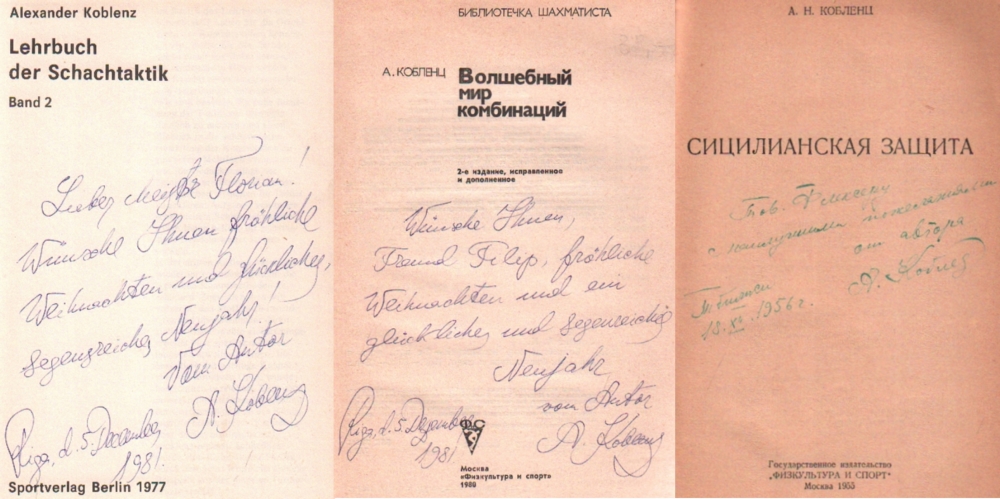 Alexander Koblenz
Lehrbuch
der Schachtaktik
Band 2
Lieber Meister Florian!
Wünsche Ihnen fröhliche
Weihnachten und glückliches,
segensreiches Neujahr!
Vom Autor
A. Koblenz
Riga, d. 5. Dezember
1981.
Sportverlag Berlin 1977
БИБЛИОТЕЧКА ШАХМАТИСТА
А. КОБЛЕНЦ
Волшебный
мир
комбинаций
2-е издание, исправленное
и дополненное
Wünsche Ihnen,
Freund Filip, fröhliche
Weihnachten und ein
glückliches und segensreiches
Neujahr
vom Autor
A. Koblenz
Riga, d. 5. Dezember
1981
ФС
Москва
«Физкультура и спорт»
1980
А. Н. КОБЛЕНЦ
СИЦИЛИАНСКАЯ ЗАЩИТА
Тов.
с наилучшими пожеланиями
от автора
А. Кобленц
Тбилиси
1956 г.
Государственное издательство
«ФИЗКУЛЬТУРА И СПОРТ»
Москва 1955